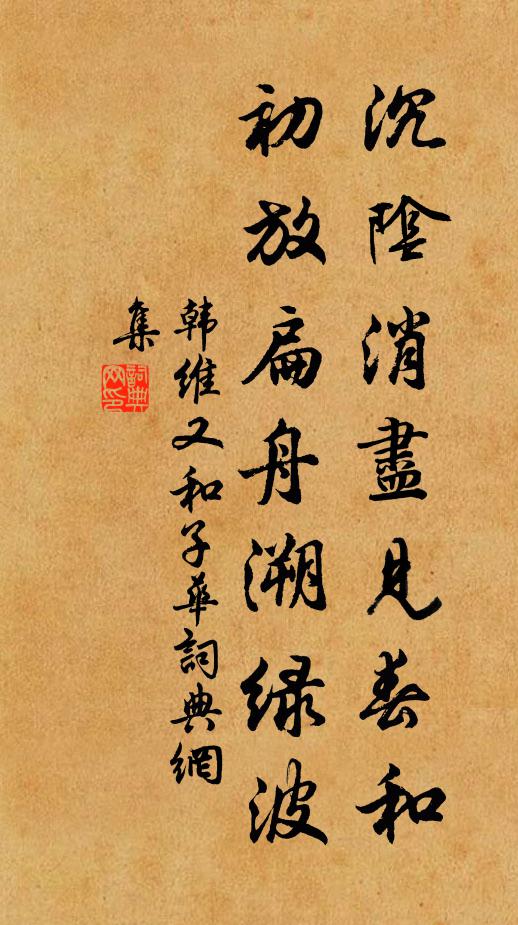 沉陰消盡見春和
初放扁舟溯绿波
韩维又和子華詞典網
集
詞典網印